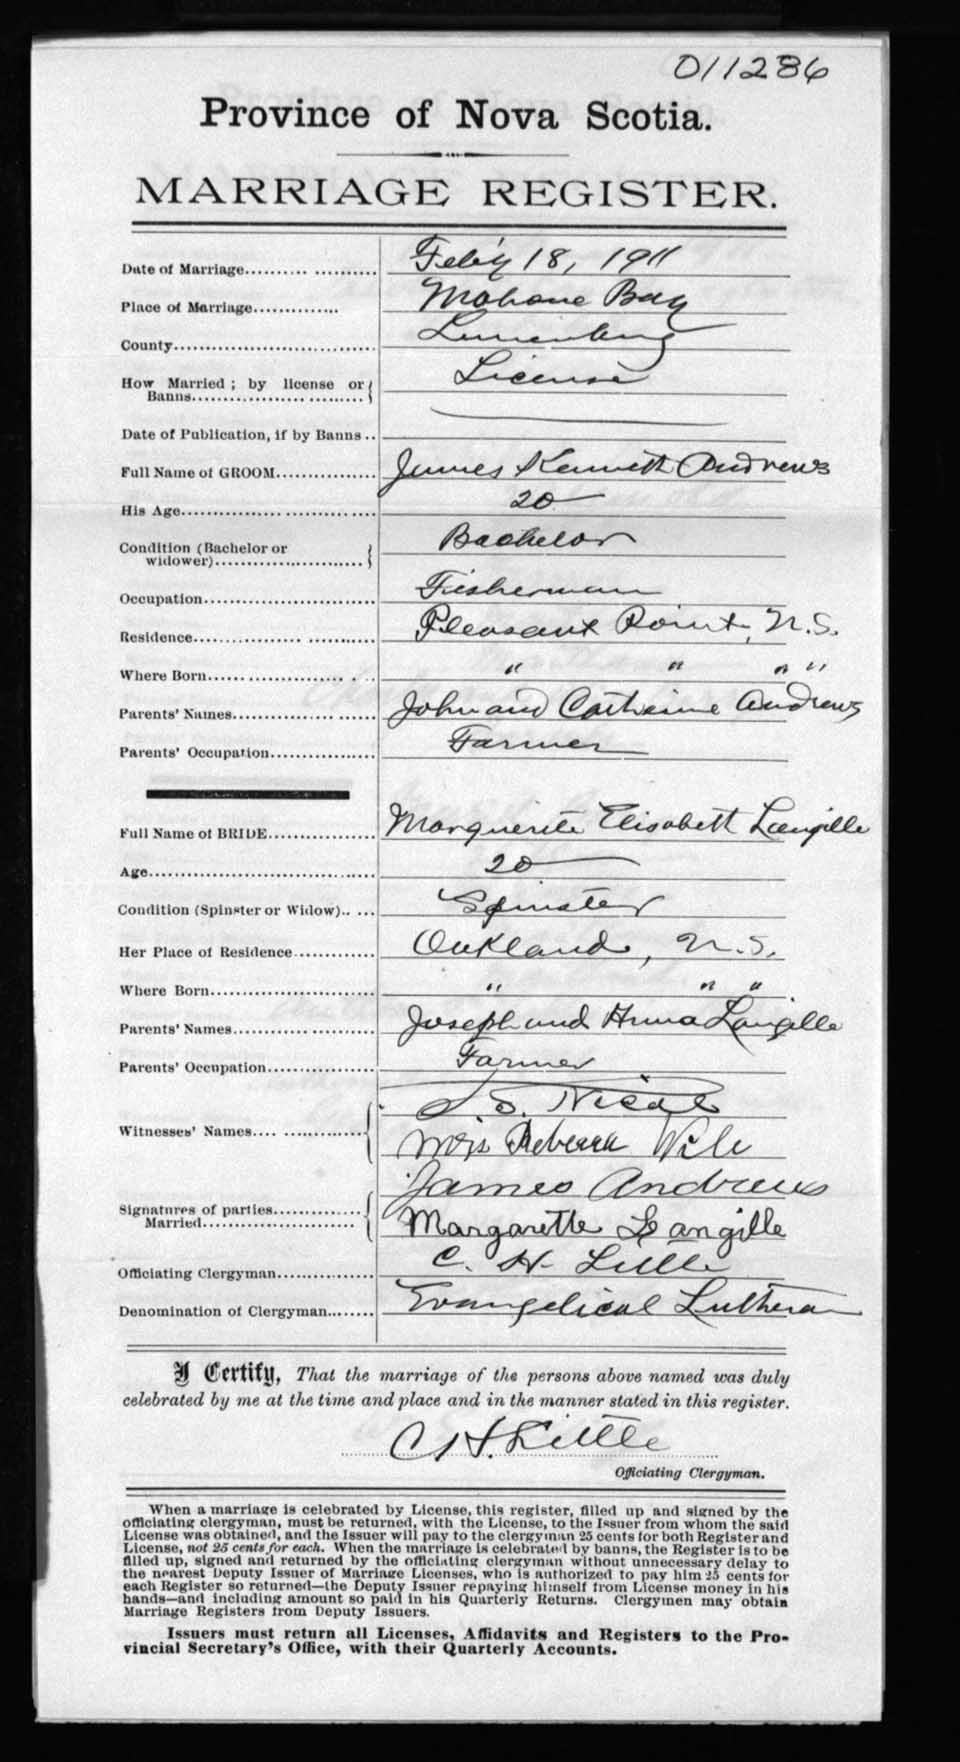 011286
Province of Nova Scotia.
MARRIAGE REGISTER.
Date of Marriage.......... Feb'y 18, 1911
Place of Marriage.............. Mahone Bay
County.............................. Lunenburg
How Married ; by license or License
Banns..............................
Date of Publication, if by Banns ..
Full Name of GROOM.............. James Kenneth Andrews
His Age.............................. 20
Condition (Bachelor or Bachelor
widower)..............................
Occupation.............................. Fisherman
Residence.............................. Pleasant Point, N.S.
Where Born.............................. " " " "
Parents' Names.............................. John and Catherine Andrews
Parents' Occupation.................. Farmer
Full Name of BRIDE................ Marguerite Elisabeth Langille
Age.............................. 20
Condition (Spinster or Widow)..... Spinster
Her Place of Residence............ Oakland, N.S.
Where Born.............................. " " "
Parents' Names.............................. Joseph and Langille
Parents' Occupation.................. Farmer
Witnesses' Names.... .............. S. Nicol
Mrs Rebecca Wile
Signatures of parties.............. James Andrews
Married.............................. Margarette Langille
Officiating Clergyman................ C. H. Little
Denomination of Clergyman........ Evangelical Lutheran
I Certify, That the marriage of the persons above named was duly
celebrated by me at the time and place and in the manner stated in this register.
C H. Little
Officiating Clergyman.
When a marriage is celebrated by License, this register, filled up and signed by the
officiating clergyman, must be returned, with the License, to the Issuer from whom the said
License was obtained, and the Issuer will pay to the clergyman 25 cents for both Register and
License, not 25 cents for each. When the marriage is celebrated by banns, the Register is to be
filled up, signed and returned by the officiating clergyman without unnecessary delay to
the nearest Deputy Issuer of Marriage Licenses, who is authorized to pay him 25 cents for
each Register so returned—the Deputy Issuer repaying himself from License money in his
hands—and including amount so paid in his Quarterly Returns. Clergymen may obtain
Marriage Registers from Deputy Issuers.
Issuers must return all Licenses, Affidavits and Registers to the Pro-
vincial Secretary's Office, with their Quarterly Accounts.